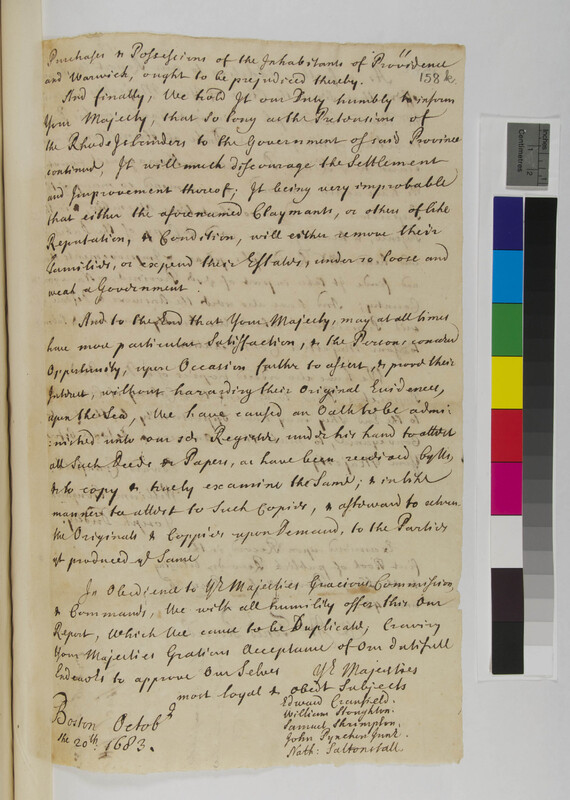 Purchases & Possessions of the Inhabitants of Providence
and Warwick, ought to be prejudiced thereby.
158
And finally, We hold It our Duty humbly to inform
Your Majesty, that so long as the Pretensions of
the Rhode Islanders to the Government of said Province
continued, It will much discourage the Settlement
and Improvement thereof; It being very improbable
that either the aforenamed Claymants, or others of like
Reputation, & Condition, will either remove their
Families, or expend their Estates, under so loose and
weak a Government.
And to the End that Your Majesty, may at all times
have more particular Satisfaction, & the Persons, concerned
Opportunity, upon Occasion farther to assert, & prove their
Interest, without hazarding their Original Evidences,
upon the Sea, We have caused an Oath to be admi-
:nistred unto our sd. Register, under his hand to attest
all Such Deeds & Papers, as have been received by Us,
& to copy & truely examine the Same; & in like
manner to attest to Such Copies, & afterward to return
the Originals & Coppies upon Demand, to the Parties
yt produced ye Same
In Obedience to Yr. Majesties Gracious Commission,
& Commands, We with all humility offer this Our
Report, Which We cause to be Duplicate, Craving
Your Majesties Gratious Acceptance of Our dutifull
Endeavrs to approve Our Selves Yr. Majesties
most loyal & obedt Subjects
Edward Cranfield.
William Stoughton.
Samuel Shrimpton.
John Pynchon Junr.
Nath: Saltonstall.
Boston Octobr
the 20th 1683.
Inches
Centimetres